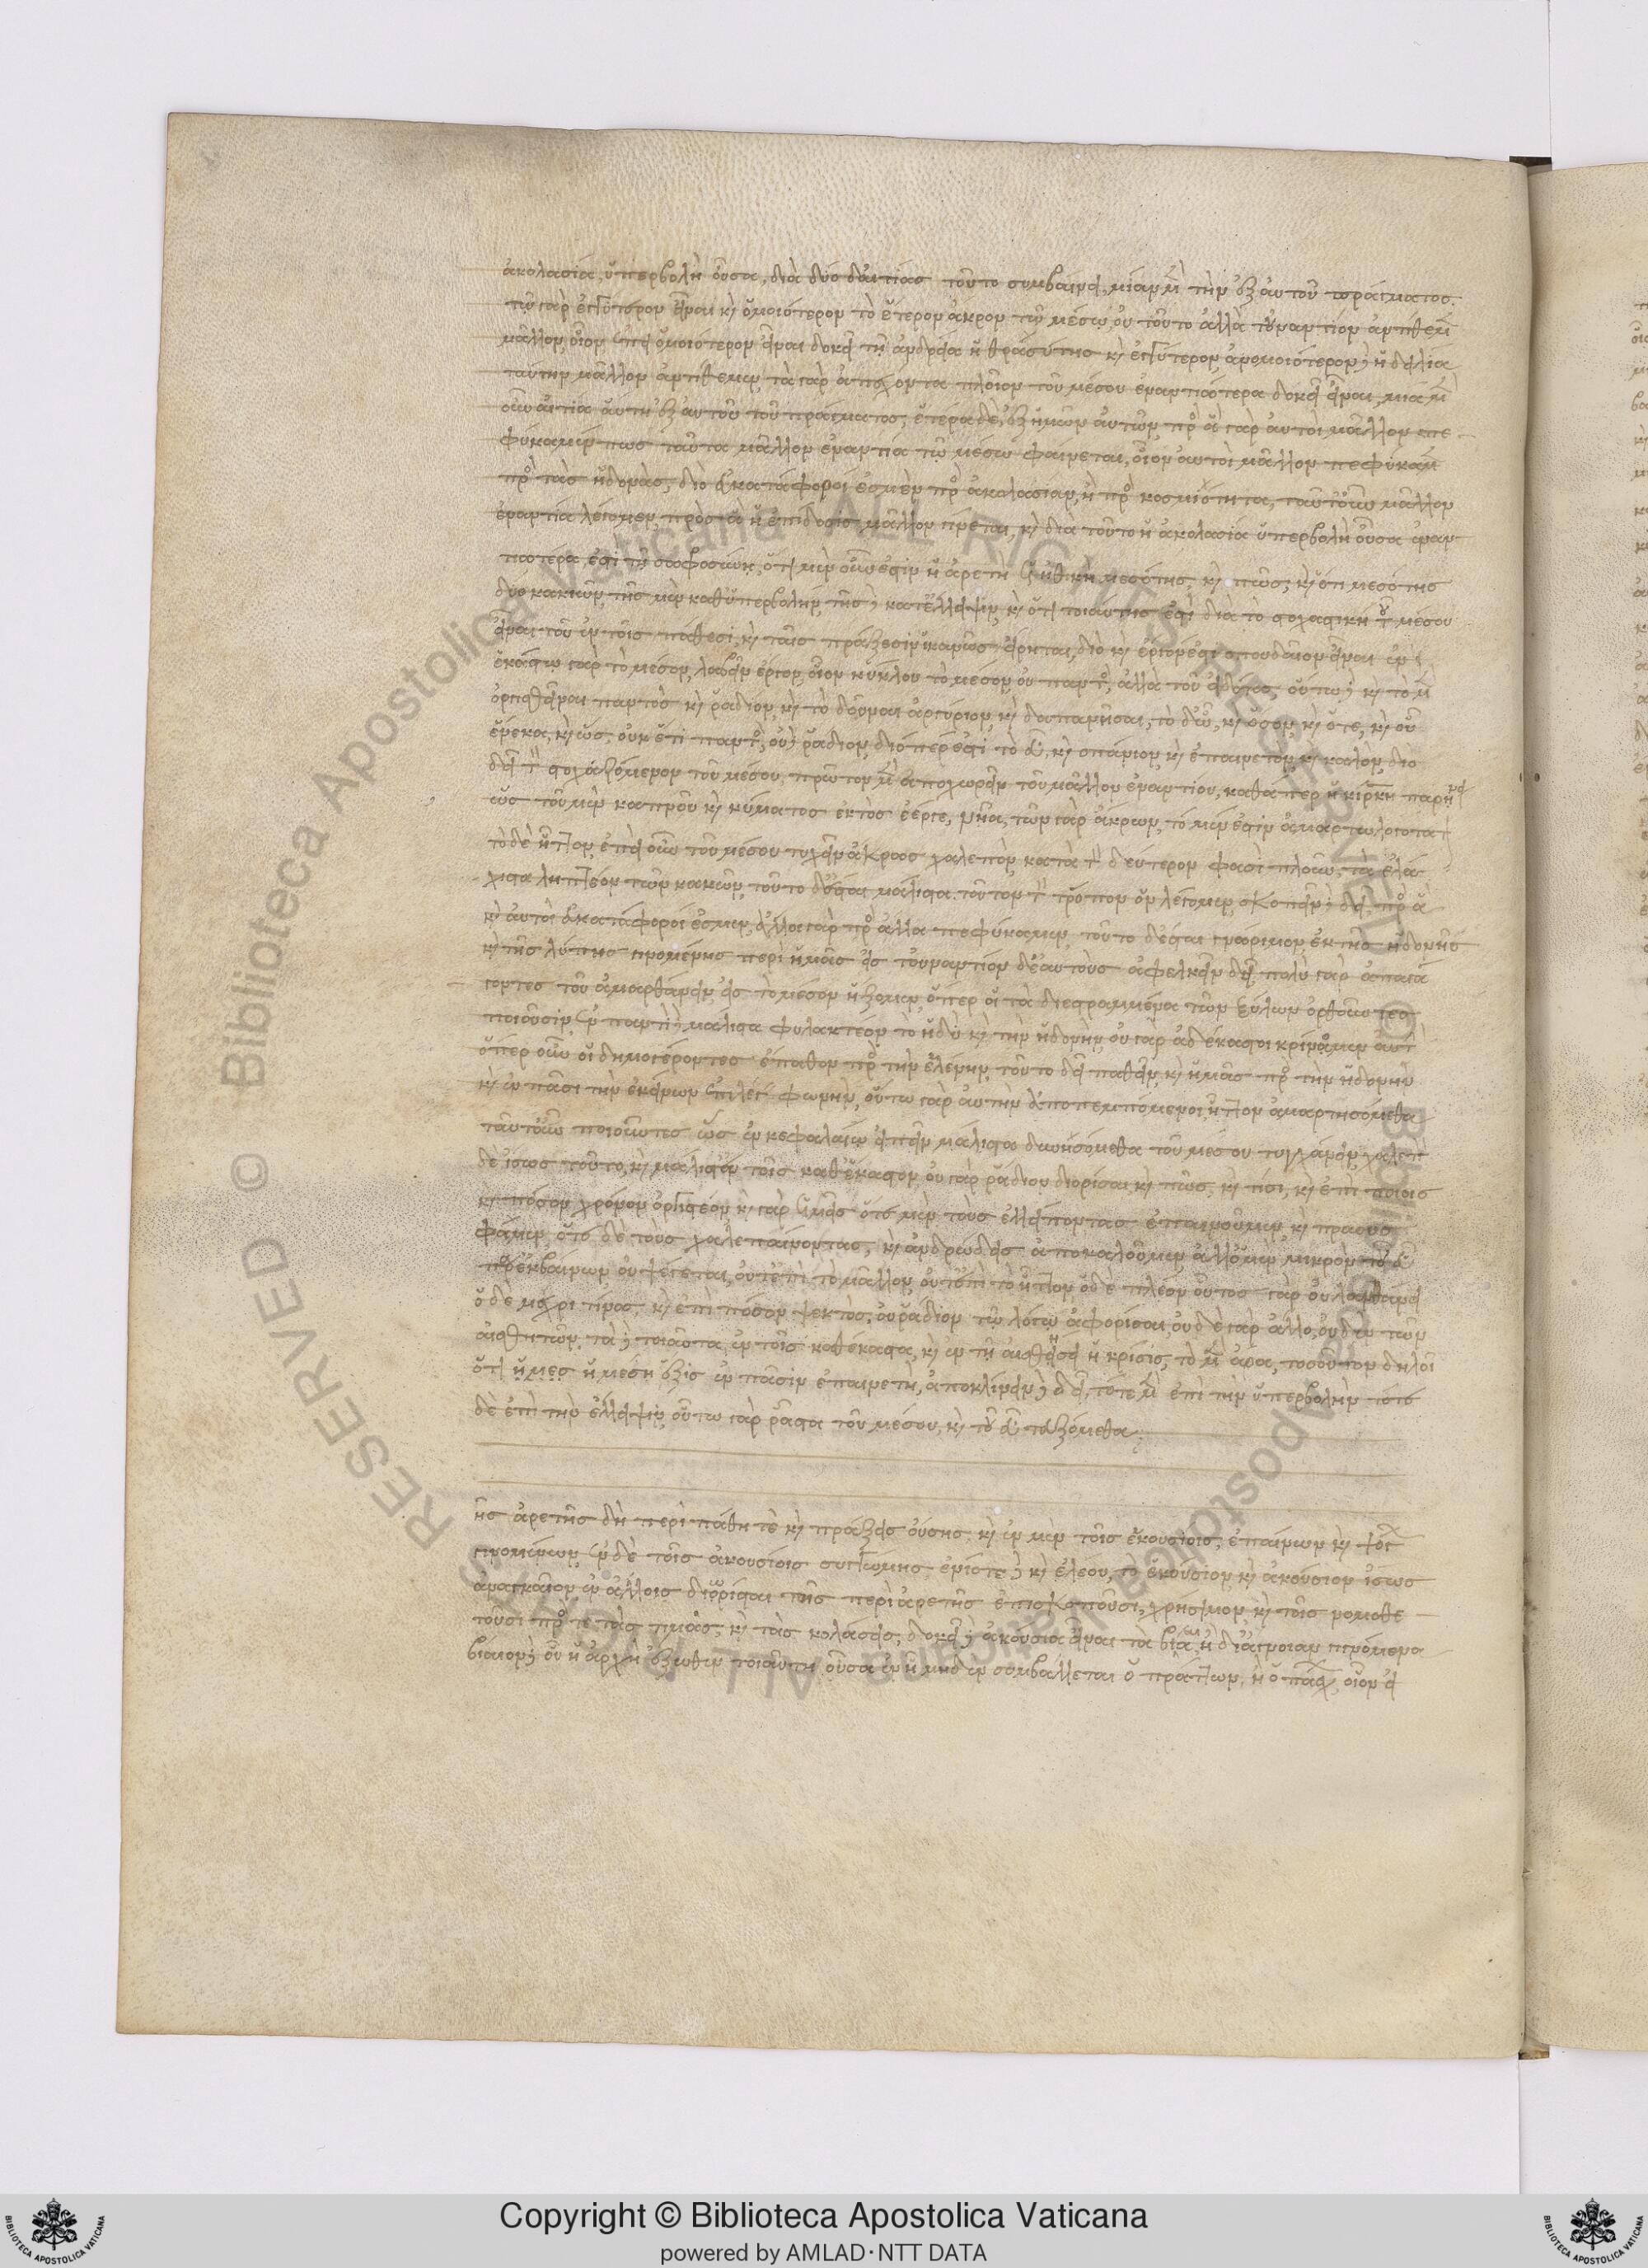 ἀκολασία, ὑπερβολὴ οὖσα, διὰ δύο δ' αἰτίας τοῦτο συμβαίνει, μίαν μὲν τὴν ἐξ αὐτοῦ πράγματος.
τῷ γὰρ ἐγγύτερον εἶναι καὶ ὁμοιότερον τὸ ἕτερον ἄκρον τῷ μέσῳ, οὐ τοῦτο ἀλλὰ τοὐναντίον ἀντιθεμ
μᾶλλον, οἷον ἐπεὶ ὁμοιότερον εἶναι δοκεῖ τῇ ἀνδρεία ἡ θρασύτης καὶ ἐγγύτερον, ἀνομοιότερον δὲ ἡ δειλία
ταύτην μᾶλλον ἀντιτίθεμεν, τὰ γὰρ ἀπέχοντα πλεῖον τοῦ μέσου ἐναντιώτερα δοκεῖ εἶναι, μία μὲν
οὖν αἰτία αὕτη ἐξ αὐτοῦ τοῦ πράγματος, ἑτέρα δὲ, ἐξ ἡμῶν αὐτῶν, πρὸς ἃ γὰρ αὐτοὶ μᾶλλον πε
φύκαμέν πως ταῦτα μᾶλλον ἐναντία τῷ μέσω φαίνεται, οἷον αὐτοὶ μᾶλλον πεφύκαμ
πρὸς τὰς ἡδονὰς, διὸ εὐκατάφοροί ἐσμεν πρὸς ἀκολασίαν, ἢ πρὸς κοσμιότητα, ταῦτ' οὖν μᾶλλον
ἐναντία λέγομεν, πρὸς ἃ ἡ ἐπίδοσις μᾶλλον γίνεται, καὶ διὰ τοῦτο ἡ ἀκολασία ὑπερβολὴ οὖσα ἐναν
τιωτέρα ἐστὶ τῇ σωφροσύνῃ, ὅτι μὲν οὖν ἐστὶν ἡ ἀρετὴ ἡ ἠθικὴ μεσότης, καὶ πῶς, καὶ ὅτι μεσότης
δύο κακιῶν, τῆς μὲν καθ' ὑπερβολήν, τῆς δὲ κατ' ἔλλειψιν, καὶ ὅτι τοιαύτης ἐστὶ διὰ τὸ στοχαστικὴ τοῦ μέσου
εἶναι τοῦ ἐν τοῖς πάθεσι, καὶ ταῖς πράξεσιν ἱκανῶς εἴρηται, διὸ καὶ ἔργον ἐστὶ σπουδαῖον εἶναι ἐν
ἑκάστω γὰρ τὸ μέσον, λαβεῖν ἔργον, οἷον κύκλου τὸ μέσον, οὐ παντὸς, ἀλλὰ τοῦ εἰδότος, οὕτω δὲ καὶ τὸ μὲν
ὀργισθῆναι παντὸς καὶ ῥάδιον, καὶ τὸ δοῦναι ἀργύριον, καὶ δαπανῆσαι, τὸ δ' ᾧ, καὶ ὅσον, καὶ ὅτε, καὶ οὗ
ἕνεκα, καὶ ὡς, οὐκ ἔτι παντὸς, οὐδὲ ῥάδιον, διόπερ ἐστὶ τὸ εὖ, καὶ σπάνιον, καὶ ἐπαινετὸν, καὶ καλὸν, διὸ
δεῖ τὸν στοχαζόμενον τοῦ μέσου, πρῶτον μὲν ἀποχωρεῖν τοῦ μᾶλλον ἐναντίου, καθάπερ ἡ κίρκη παρῄνει
ὡς τοῦ μὲν καπνοῦ καὶ κύματος ἐκτὸς ἔεργε, νῆα, τῶν γὰρ ἄκρων, τὸ μέν ἐστιν ἁμαρτωλότατ
τὸ δὲ ἧττον, ἐπεὶ οὖν τοῦ μέσου τυχεῖν ἄκρως χαλεπὸν, κατὰ τὸν δεύτερον φασὶ πλοῦν, τὰ ἐλά
χιστα ληπτέον τῶν κακῶν, τοῦτο δ' ἔσται μάλιστα τοῦτον τὸν τρόπον ὃν λέγομεν, σκοπεῖν δὲ δεῖ, πρὸς ἃ
καὶ αὐτοὶ εὐκατάφοροί ἐσμεν, ἄλλοι γὰρ πρὸς ἄλλα πεφύκαμεν, τοῦτο δ' ἔσται γνώριμον, ἐκ τῆς ἡδονῆς
καὶ τῆς λύπης γινομένης περὶ ἡμᾶς εἰς τοὐναντίον δ' ἑαυτοὺς ἀφέλκειν δεῖ πολὺ γὰρ ἀπαγα
γόντες τοῦ ἁμαρτάνειν, εἰς τὸ μέσον ἥξομεν, ὅπερ οἱ τὰ διεστραμμένα τῶν ξύλων ὀρθοῦντες
ποιοῦσιν, ἐν παντὶ δὲ μάλιστα φυλακτέον τὸ ἡδὺ καὶ τὴν ἡδονὴν, οὐ γὰρ ἀδέκαστοι κρίνομεν αὐτὴν
ὅπερ οὖν οἱ δημογέροντες ἔπαθον πρὸς τὴν ἑλένην, τοῦτο δεῖ παθεῖν, καὶ ἡμᾶς πρὸς τὴν ἡδονὴν
καὶ ἐν πᾶσι τὴν ἐκείνων ἐπιλέγειν φωνὴν, οὕτω γὰρ αὐτὴν ἀποπεμπόμενοι ἧττον ἁμαρτησόμεθα
ταῦτ' οὖν ποιοῦντες ὡς ἐν κεφαλαίῳ εἰπεῖν μάλιστα δυνησόμεθα τοῦ μέσου τυγχάνειν, χαλεπὸν
δ' ἴσως τοῦτο, καὶ μάλιστ' ἐν τοῖς καθ' ἕκαστον, οὐ γὰρ ῥάδιον διορίσαι, καὶ πῶς, καὶ τίσι, καὶ ἐπὶ ποίοις
καὶ πόσον χρόνον ὀργιστέον, καὶ γὰρ ἡμεῖς ὁτὲ μὲν τοὺς ἐλλείποντας ἐπαινοῦμεν, καὶ πράους
φαμὲν, ὁτὲ δὲ τοὺς χαλεπαίνοντας, καὶ ἀνδρώδεις ἀποκαλοῦμεν, ἀλλ' ὁ μὲν μικρὸν τοῦ εὖ
παρεκβαίνων οὐ ψέγεται, οὔτ' ἐπὶ τὸ μᾶλλον, οὔτ' ἐπὶ τὸ ἧττον, ὁ δὲ πλέον, οὗτος γὰρ οὐ λανθάνει
ὁ δὲ μέχρι τίνος, καὶ ἐπὶ πόσον ψεκτὸς, οὐ ῥάδιον τῷ λόγῳ ἀφορίσαι, οὐδὲ γὰρ ἄλλο, οὐδὲν τῶν
αἰσθητῶν, τὰ δὲ τοιαῦτα, ἐν τοῖς καθέκαστα, καὶ ἐν τῇ αἰσθήσει ἡ κρίσις, τὸ μὲν ἄρα, τοσοῦτον δηλοῖ
ὅτι ἡ μεσ ἡ μέση ἕξις ἐν πᾶσιν ἐπαινετὴ, ἀποκλίνειν δὲ δεῖ, τότε μὲν ἐπὶ τὴν ὑπερβολὴν τότε
δὲ ἐπὶ τὴν ἔλλειψιν, οὕτω γὰρ ῥᾶστα τοῦ μέσου, καὶ τοῦ εὖ τευξόμεθα.
ῆς ἀρετῆς δὴ περὶ πάθη τε καὶ πράξεις οὔσης, καὶ ἐν μὲν τοῖς ἑκουσίοις, ἐπαίνων καὶ ψόγων
γινομένων, ἐν δὲ τοῖς ἀκουσίοις συγγνώμης, ἐνίοτε δὲ καὶ ἐλέου, τὸ ἑκούσιον, καὶ ἀκούσιον ἴσως
ἀναγκαῖον ἐν ἄλλοις διωρίσθαι τῆς περὶ ἀρετῆς ἐπισκοποῦσι, χρήσιμον, καὶ τοῖς νομοθε
τοῦσι πρός τε τὰς τιμὰς, καὶ τὰς κολάσεις, δοκεῖ δὲ ἀκούσια εἶναι τὰ βίᾳ, ἢ δι' ἄγνοιαν γινόμενα
βίαιον δὲ οὗ ἡ ἀρχὴ ἔξωθεν τοιαύτη οὖσα ἐν ᾗ μηδὲν συμβάλλεται ὁ πράττων, ἢ ὁ πάσχων, οἷον εἰ
Copyright © Biblioteca Apostolica Vaticana
powered by AMLAD·NTT DATA